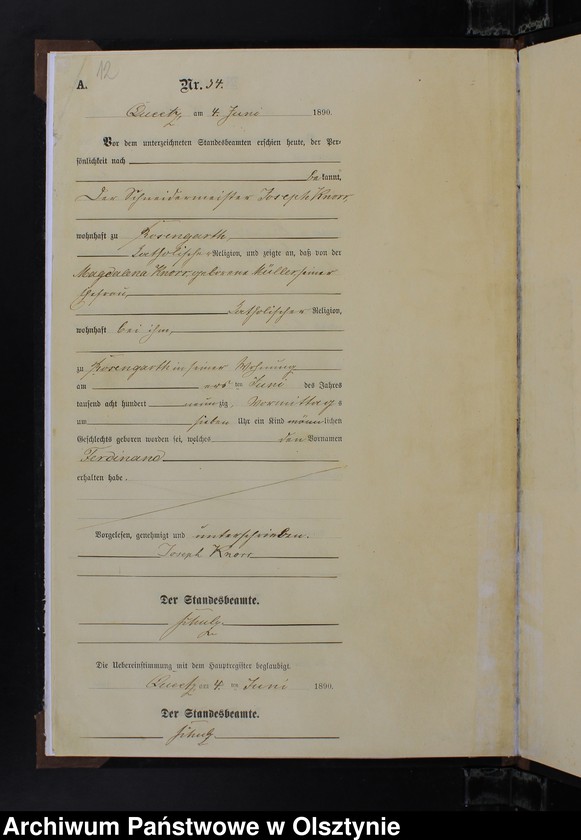 12
A.
Nr. 34.
Queetz am 4. Juni 1890.
Vor dem unterzeichneten Standesbeamten erschien heute, der Per-
sönlichkeit nach
bekannt,
Der Schneidermeister Joseph Knorr,
wohnhaft zu Rosengarth,
katholischer Religion, und zeigte an, daß von der
Magdalena Knorr, geborene Müller, seiner
Ehefrau,
katholischer Religion,
wohnhaft bei ihm,
zu Rosengarth in seiner Wohnung
am ten Juni des Jahres
tausend acht hundert neunzig, Vormittags
um sieben Uhr ein Kind männlichen
Geschlechts geboren worden sei, welches den Vornamen
Ferdinand
erhalten habe.
Vorgelesen, genehmigt und unterschrieben.
Joseph Knorr
Der Standesbeamte.
Schulz
Die Uebereinstimmung mit dem Hauptregister beglaubigt
Queetz am 4. ten Juni 1890.
Der Standesbeamte.
Schulz
Archiwum Państwowe w Olsztynie